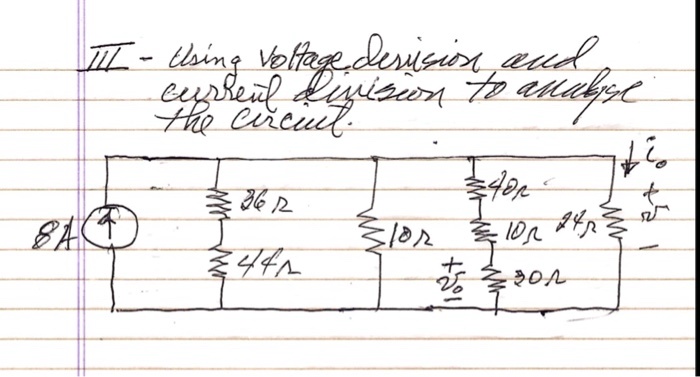 III - Using voltage division and
current division to analyze
the circuit.
i₀
40Ω
36Ω
+
v
-
8A
10Ω
10Ω
24Ω
44Ω
+
v₀
-
30Ω